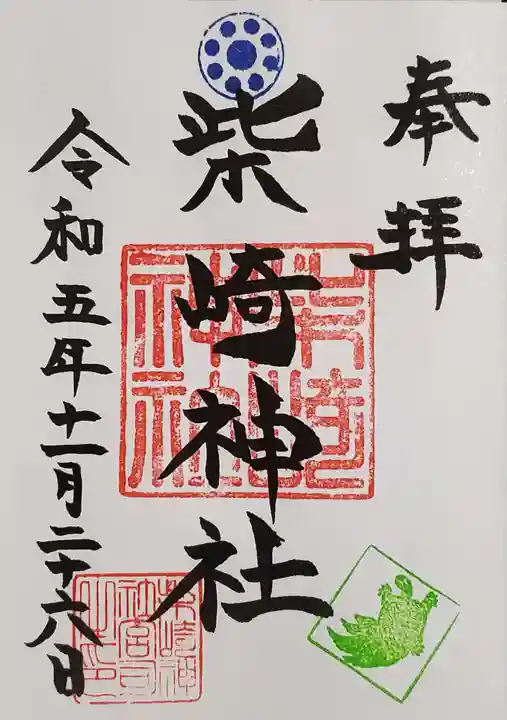 奉拝
柴崎神社
柴崎神社
令和五年十一月二十六日
柴崎神
社宮司
之印